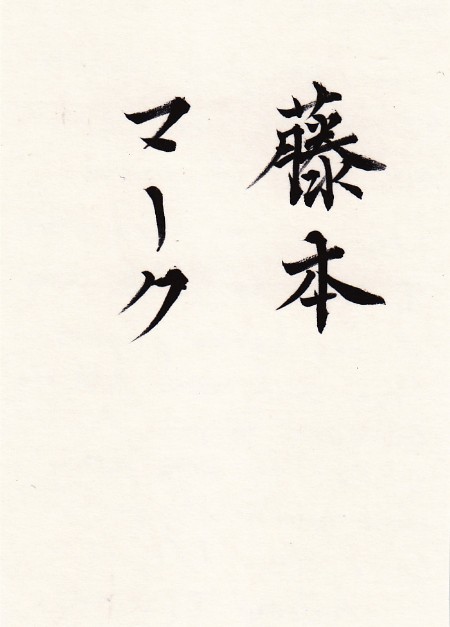 藤本
マーク